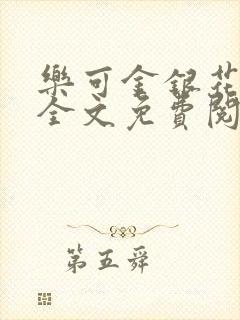 樂可金銀花
全文免費閱
第五舜